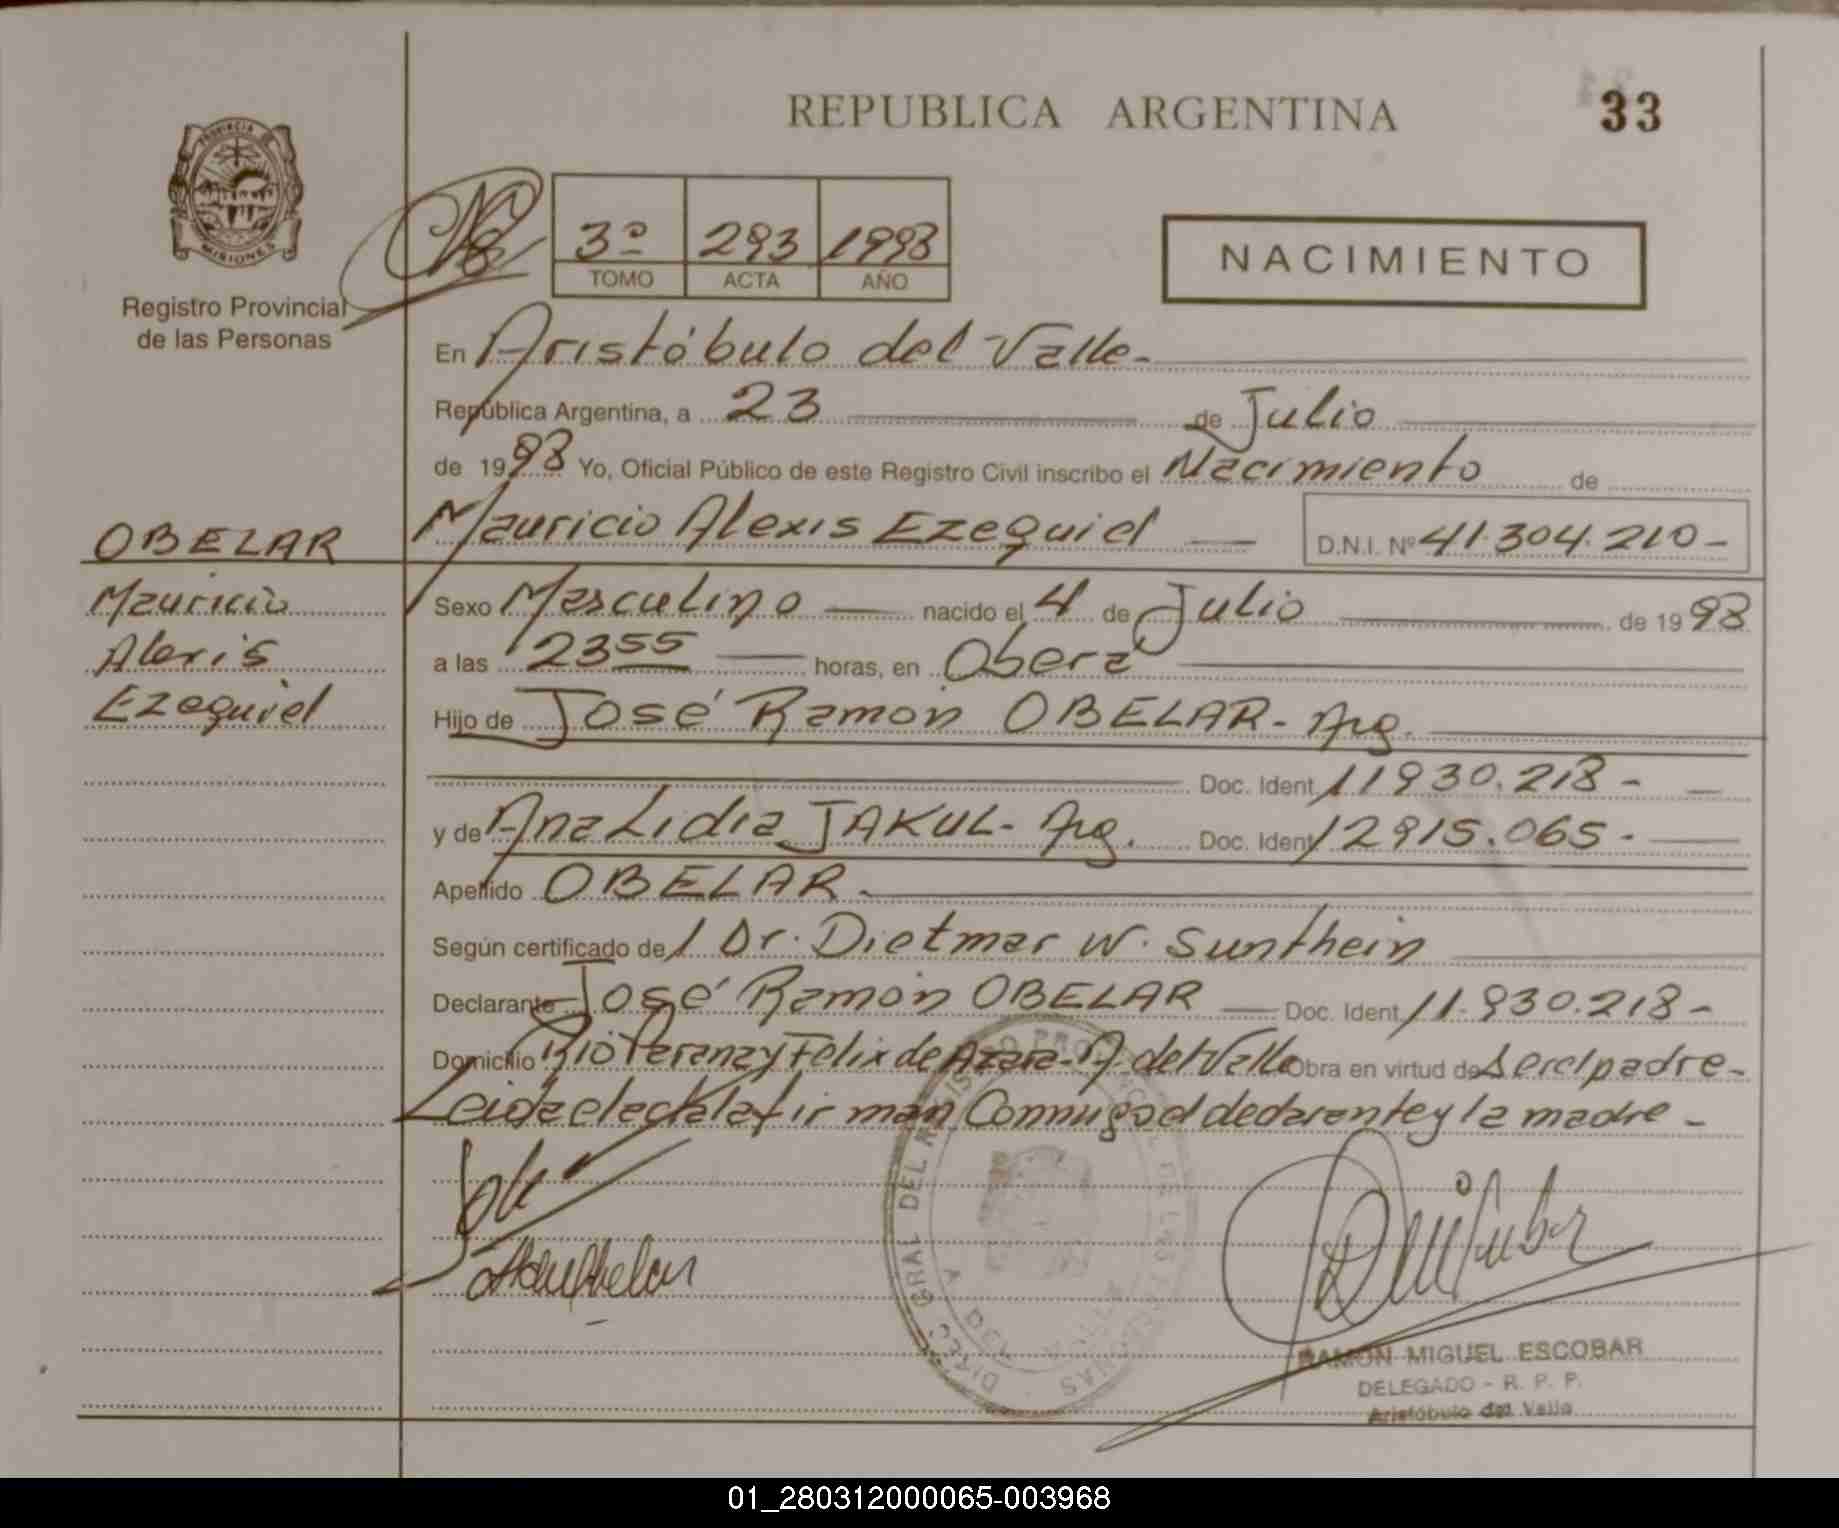 REPUBLICA ARGENTINA
33
PROVINCIA DE
MISIONES
Registro Provincial
de las Personas
3º 293 1998
TOMO ACTA AÑO
NACIMIENTO
En Aristóbulo del Valle-
República Argentina, a 23 de Julio
de 1998 Yo, Oficial Público de este Registro Civil inscribo el Nacimiento de
OBELAR
Mauricio Alexis Ezequiel D.N.I. Nº 41.304.210-
Mauricio
Alexis
Ezequiel
Sexo Masculino nacido el 4 de Julio de 1998
a las 23 55 horas, en Oberá
Hijo de José Ramón OBELAR- Arg.
Doc. Ident. 11930.218-
y de Ana Lidia JAKUL- Arg. Doc. Ident. 12915.065-
Apellido OBELAR-
Según certificado de / Dr. Dietmar W. Sunthein
Declarante José Ramón OBELAR Doc. Ident. 11.930.218-
Domicilio Rio Parana y Felix de Azara- A. del Valle Obra en virtud de ser el padre-
Leida el acta la firman Conmigo el declarante y la madre-
DIREC. GRAL. DEL REGISTRO PROVINCIAL DE LAS PERSONAS
RAMON MIGUEL ESCOBAR
DELEGADO - R. P. P.
Aristóbulo del Valle
01_280312000065-003968